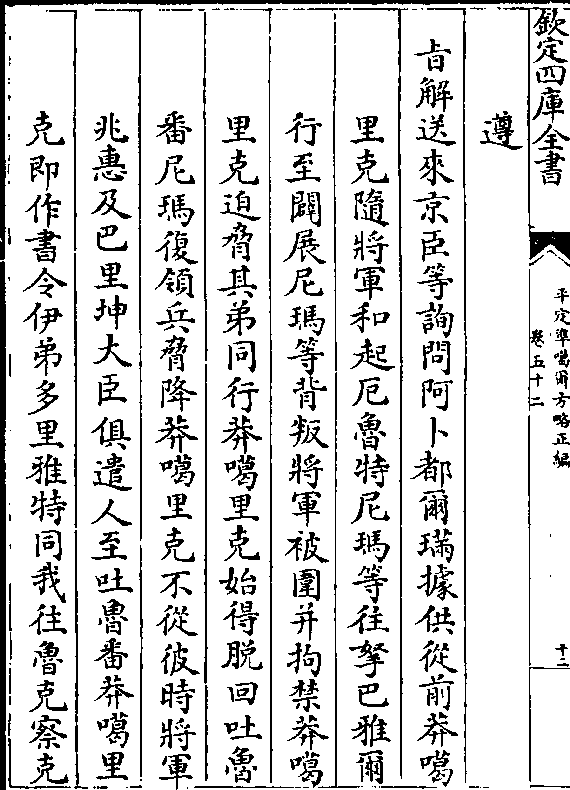 欽定四庫全書
平定準噶爾方略正編
卷五十二
十二
遵
旨解送來京臣等詢問阿卜都爾璊據供從前莽噶
里克隨將軍和起厄魯特尼瑪等往拏巴雅爾
行至闢展尼瑪等背叛將軍被圍并拘禁莽噶
里克迫脅其弟同行莽噶里克始得脱回吐魯
番尼瑪復領兵脅降莽噶里克不從彼時將軍
兆惠及巴里坤大臣俱遣人至吐魯番莽噶里
克即作書令伊弟多里雅特同我往魯克察克